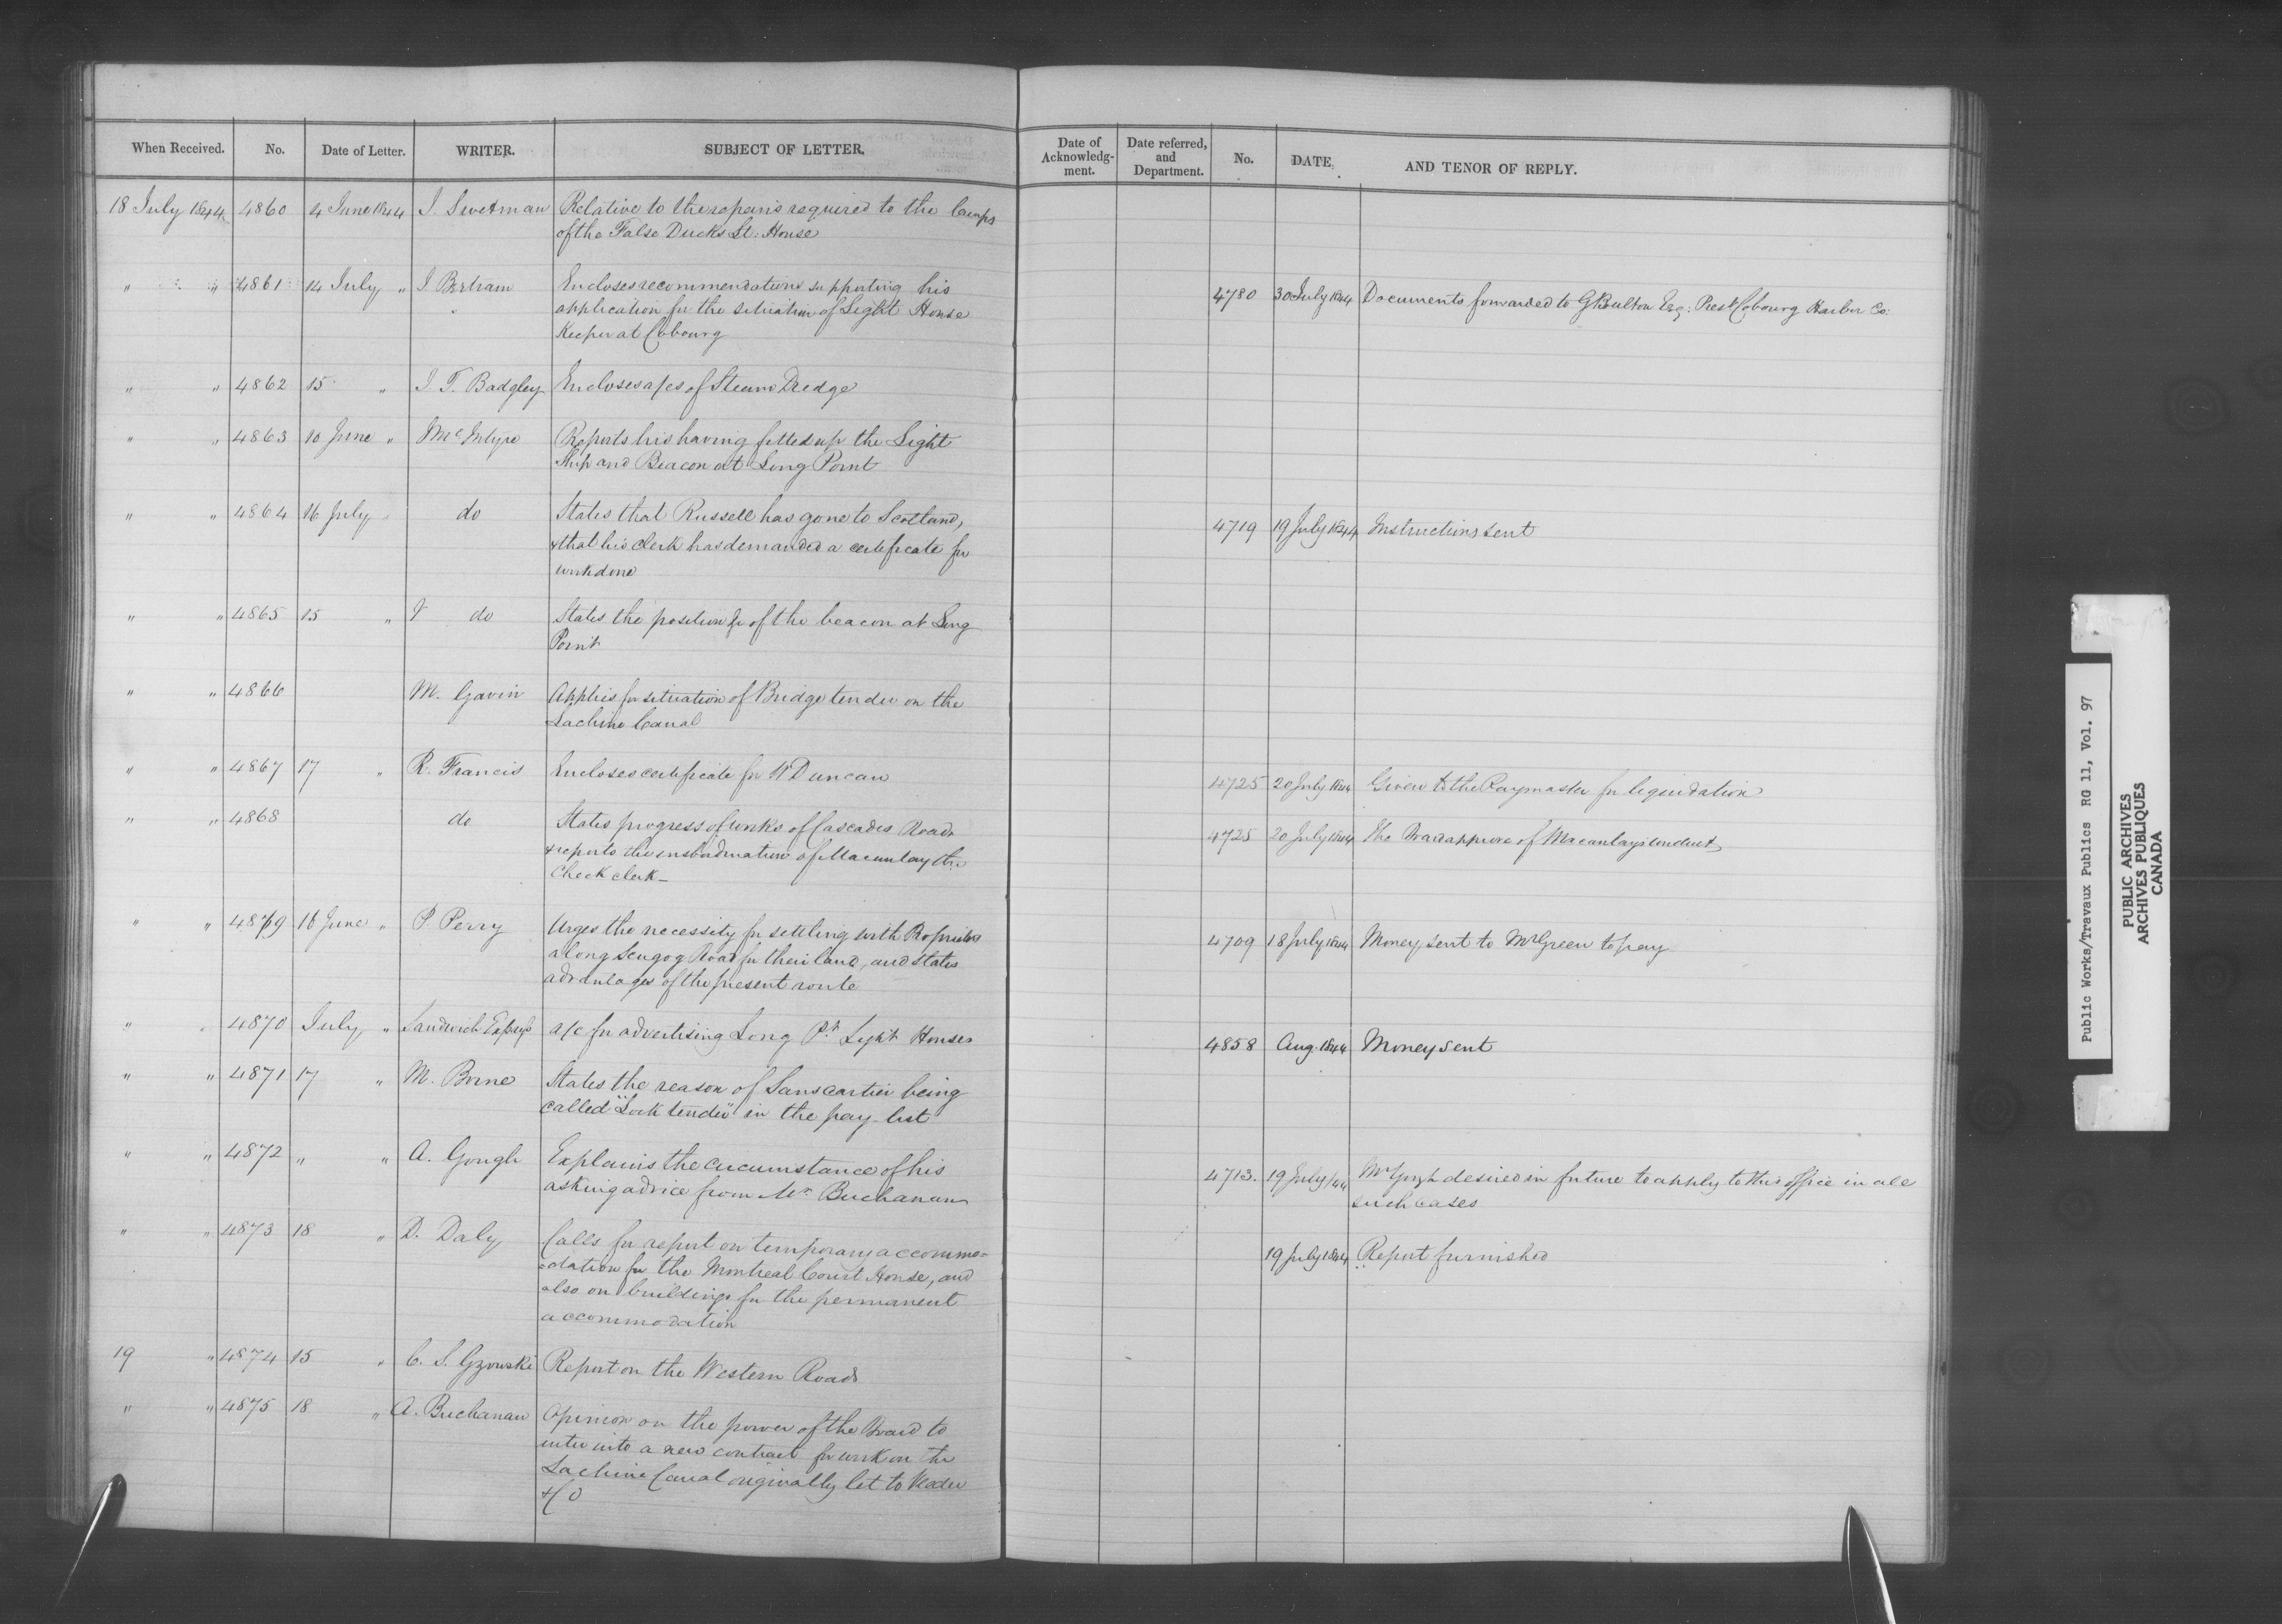 When Received. No. Date of Letter. WRITER. SUBJECT OF LETTER. Date of Acknowledg-ment. Date referred, and Department. No. DATE. AND TENOR OF REPLY.
18 July 1844 4860 4 June 1844 J. Swetman Relative to the repairs required to the Lamps
of the False Ducks Lt: House
" " 4861 14 July " J Bertram Encloses recommendations supporting his
application for the situation of Light House 4780 30 July 1844 Documents forwarded to G Boulton Esq: Prest Cobourg Harbor Co:
Keeper at Cobourg
" " 4862 15 " J. T. Badgley Encloses a/cs of Steam Dredge
" " 4863 10 June " McIntyre Reports his having fitted up the Light
Ship and Beacon at Long Point
" " 4864 16 July " do States that Russell has gone to Scotland, 4719 19 July 1844 Instructions sent
& that his clerk has demanded a certificate for
work done
" " 4865 15 " do States the position &c of the beacon at Long
Point
" " 4866 M. Gavin Applies for situation of Bridge tender on the
Lachine Canal
" " 4867 17 " R. Francis Encloses certificate for W Duncan 4725 20 July 1844 Given to the Paymaster for liquidation
" " 4868 do States progress of works of Cascades Road 4725 20 July 1844 The Board approve of Macaulay's conduct
& reports the insubordination of Macaulay the
Check clerk_
" " 4869 16 June " P. Perry Urges the necessity for settling with Proprietors 4709 18 July 1844 Money sent to Mr Green to pay
along Scugog Road for their land, and states
advantages of the present route
" " 4870 July " Sandwich Express a/c for advertising Long Pt. Light Houses 4858 Aug. 1844 Money sent
" " 4871 17 " M. Borne States the reason of Sanscartier being
called "Lock tender" in the pay-list
" " 4872 " " A. Gough Explains the circumstance of his 4713. 19 July/44 Mr Gough desired in future to apply to this office in all
asking advice from Mr. Buchanan such cases
" " 4873 18 " D. Daly Calls for report on temporary accommo= 19 July 1844 Report furnished
=dation for the Montreal Court House, and
also on buildings for the permanent
accommodation
19 " 4874 15 " C. S. Gzowski Report on the Western Roads
" " 4875 18 " A. Buchanan Opinion on the power of the Board to
enter into a new contract for work on the
Lachine Canal originally let to
& Co
Public Works/Travaux Publics RG 11, Vol. 97
PUBLIC ARCHIVES
ARCHIVES PUBLIQUES
CANADA